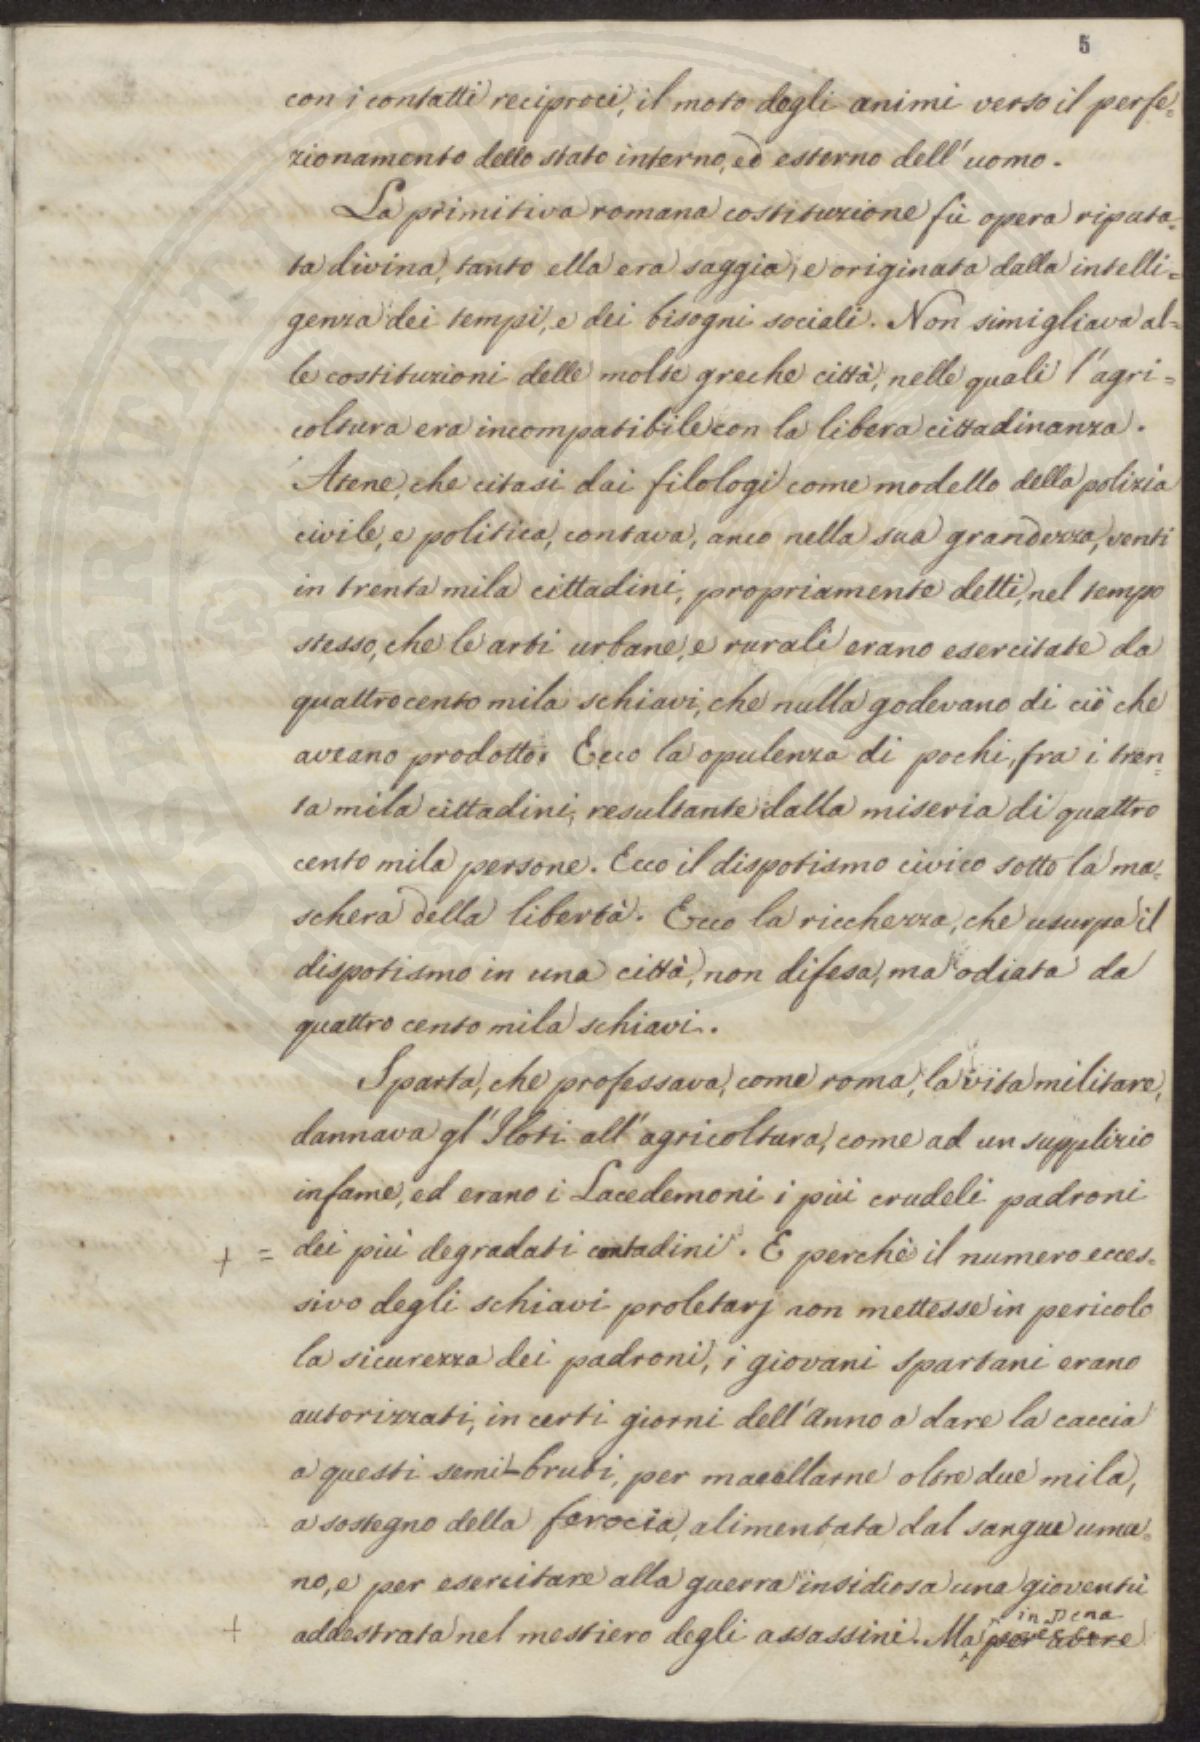 5
con i contatti reciproci, il moto degli animi verso il perfe=
zionamento dello stato interno, ed esterno dell'uomo.
La primitiva romana costituzione fù opera riputa=
ta divina, tanto ella era saggia, e originata dalla intelli=
genza dei tempi, e dei bisogni sociali. Non simigliava al=
le costituzioni delle molte greche città, nelle quali l'agri=
coltura era incompatibile con la libera cittadinanza.
Atene, che citasi dai filologi come modello della polizia
civile, e politica, contava, anco nella sua grandezza, venti
in trenta mila cittadini, propriamente detti, nel tempo
stesso, che le arti urbane, e rurali erano esercitate da
quattrocento mila schiavi, che nulla godevano di ciò che
aveano prodotto. Ecco la opulenza di pochi, fra i tren=
ta mila cittadini, resultante dalla miseria di quattro
cento mila persone. Ecco il dispotismo civico sotto la ma=
schera della libertà. Ecco la ricchezza, che usurpa il
dispotismo in una città, non difesa, ma odiata da
quattro cento mila schiavi.
Sparta, che professava, come roma, la vita militare,
dannava gl'Iloti all'agricoltura, come ad un supplizio
infame, ed erano i Lacedemoni i più crudeli padroni
+ = dei più degradati contadini. E perchè il numero ecces=
sivo degli schiavi proletarj non mettesse in pericolo
la sicurezza dei padroni, i giovani spartani erano
autorizzati, in certi giorni dell'anno a dare la caccia
a questi semi-bruti, per macellarne oltre due mila,
a sostegno della ferocia, alimentata dal sangue uma=
no, e per esercitare alla guerra insidiosa una gioventù
in pena
+ addestrata nel mestiero degli assassini. Ma per avere